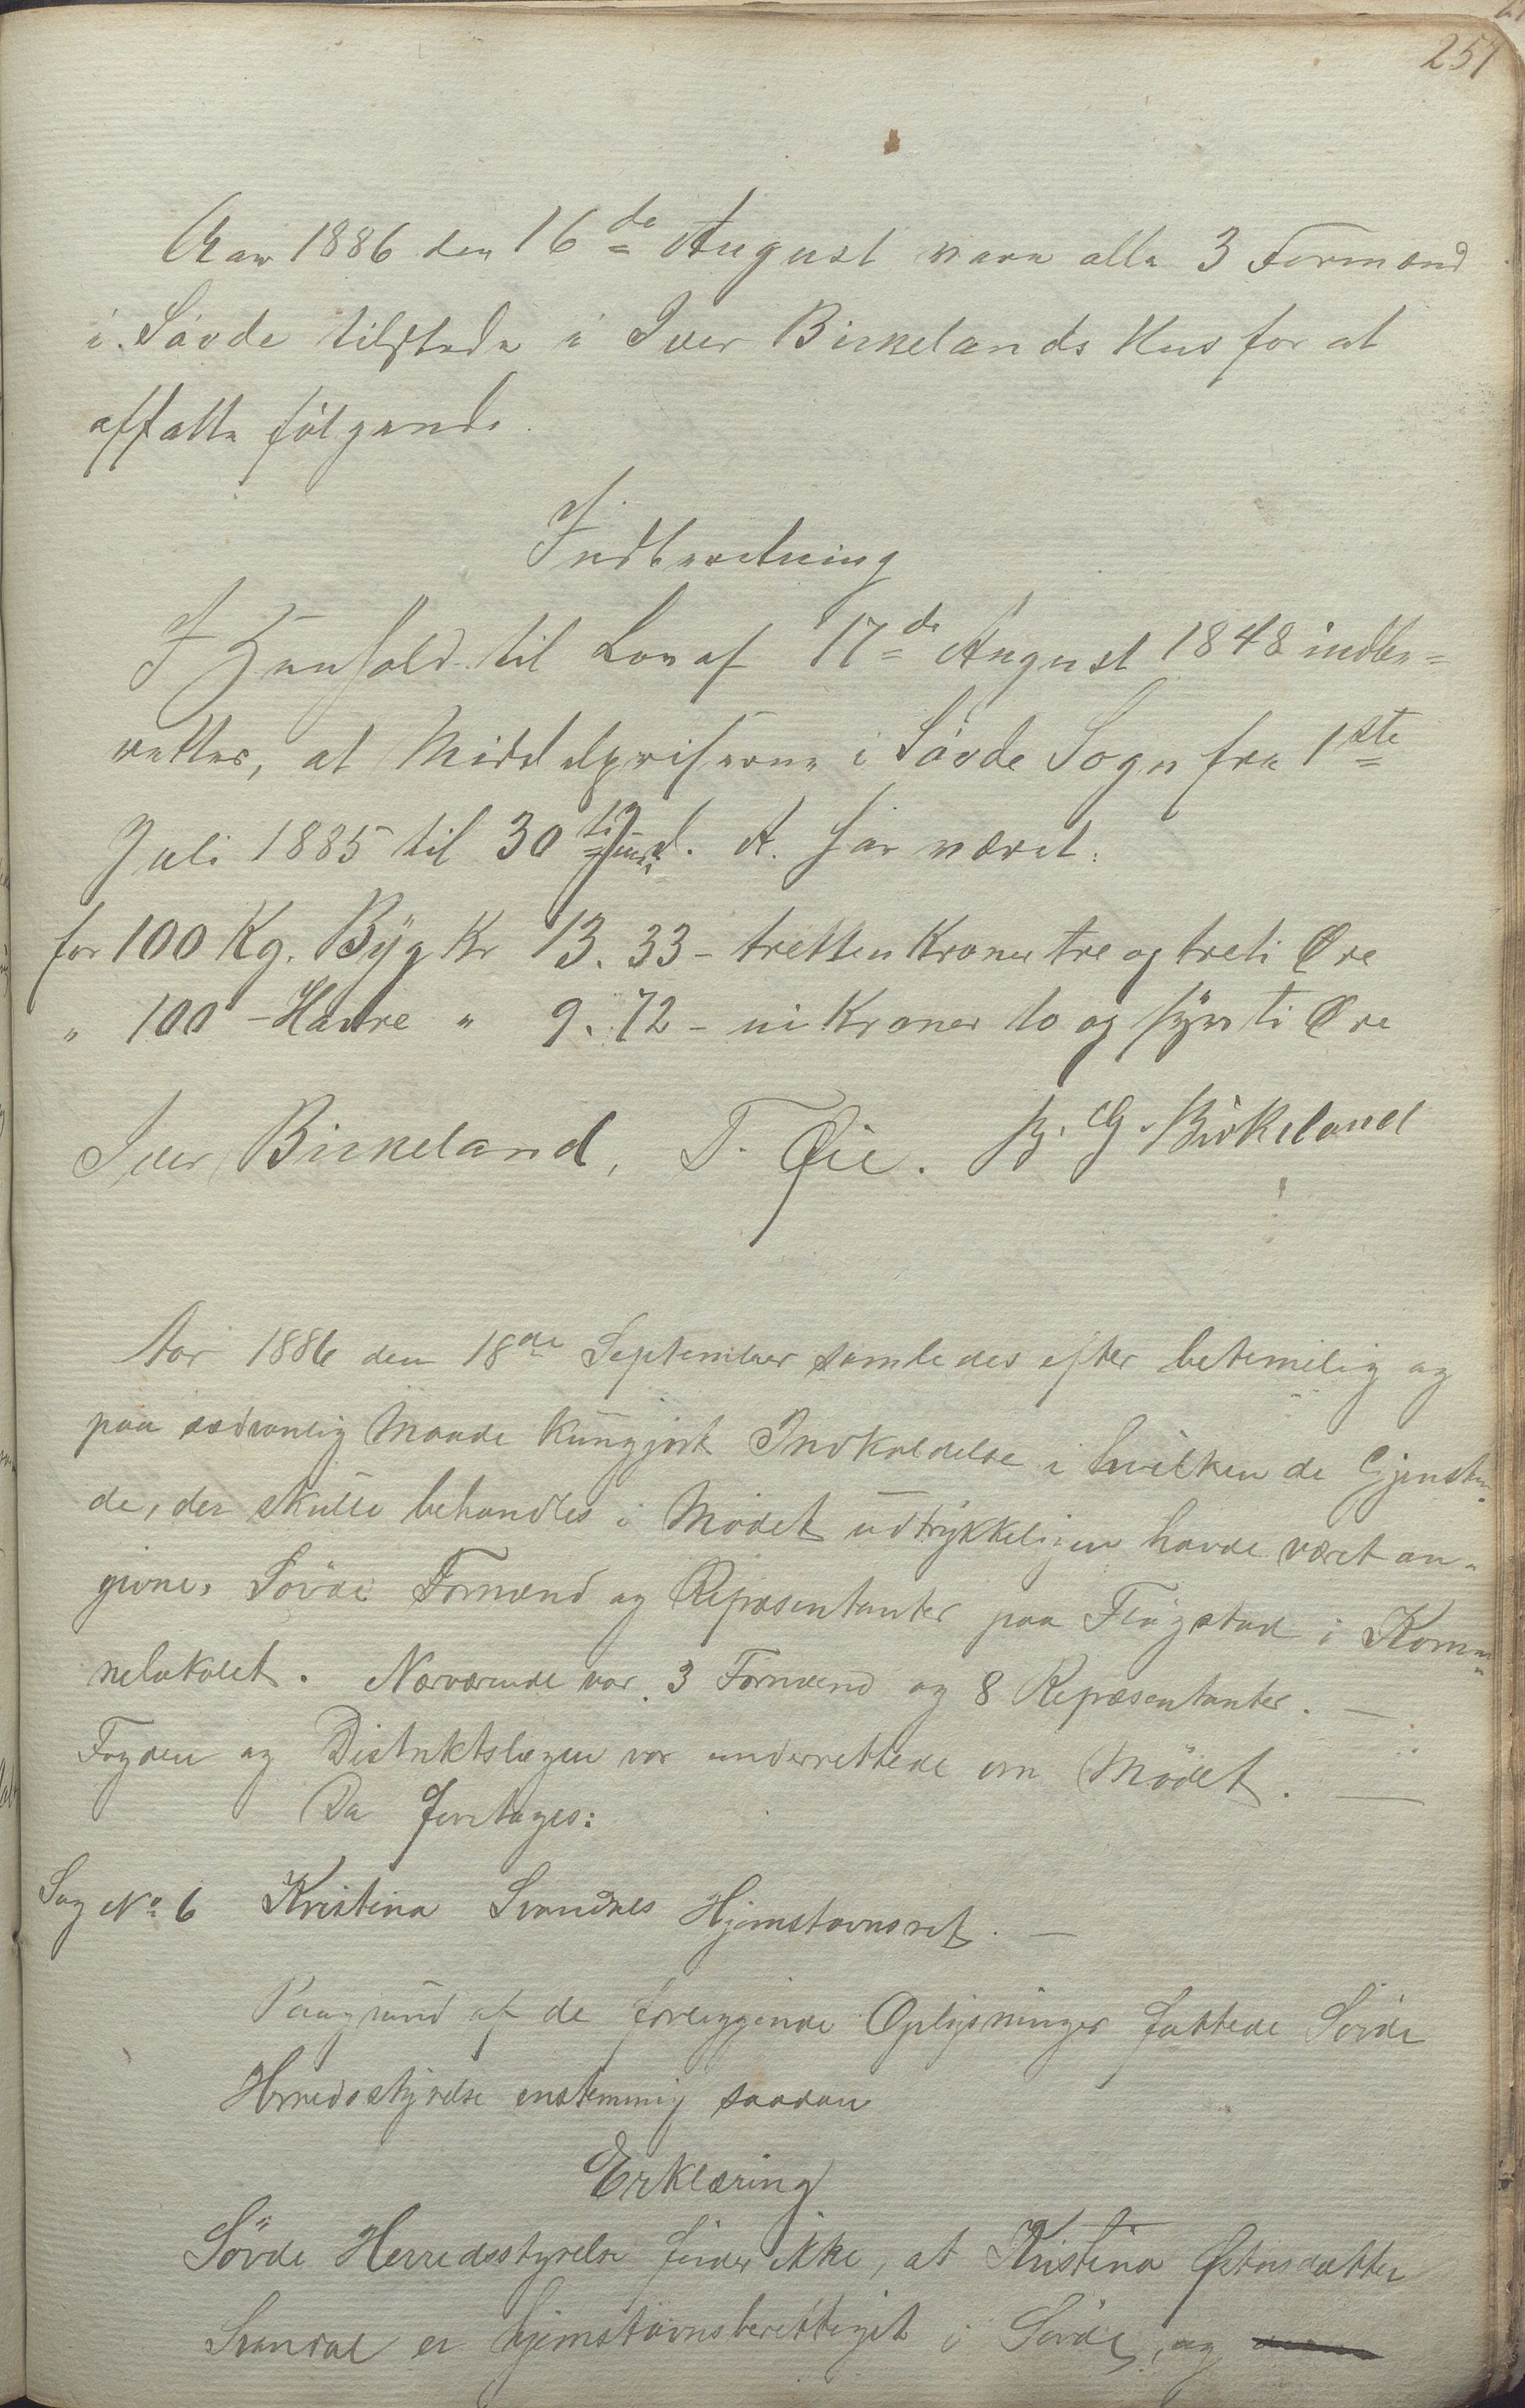 257
Aar 1886 den 16de August vare alle 3 Formænd
i Søvde tilstede i Iver Birkelands Hus for at
affatte følgende
Indberetning
I Henhold til Lov af 17de August 1848 indbe=
rettes, at Middelpriserne i Søvde Sogn fra 1ste
Juli 1885 til 30te Juni d. A. har været:
for 100 Kg. Byg Kr 13.33 - tretten Kroner tre og treti Øre
" 100 - Havre " 9.72 - ni Kroner to og sytti Øre
Iver Birkeland, T. Øie. G. Birkeland
Aar 1886 den 18de September samledes efter betimelig og
paa sædvanlig Maade kungjort Indkaldelse i hvilken de Gjenstan-
de, der skulle behandles i Mødet udtrykkeligen havde været an-
givne, Søvde Formænd og Repræsentanter paa Fiøgstad i Kommu-
nelokalet. Nærværende var 3 Formænd og 8 Repræsentanter. —
Fogden og Distriktslægen var underrettede om Mødet. —
Da foretages:
Sag No 6 Kristina Svandals Hjemstavnsret. —
Paagrund af de foreliggende Oplysninger fattede Søvde
Herredsstyrelse enstemmig saadan
Erklæring
Søvde Herredsstyrelse finder ikke, at Kristina Petersdatter
Svandal er hjemstavnsberettiget i Søvde, og